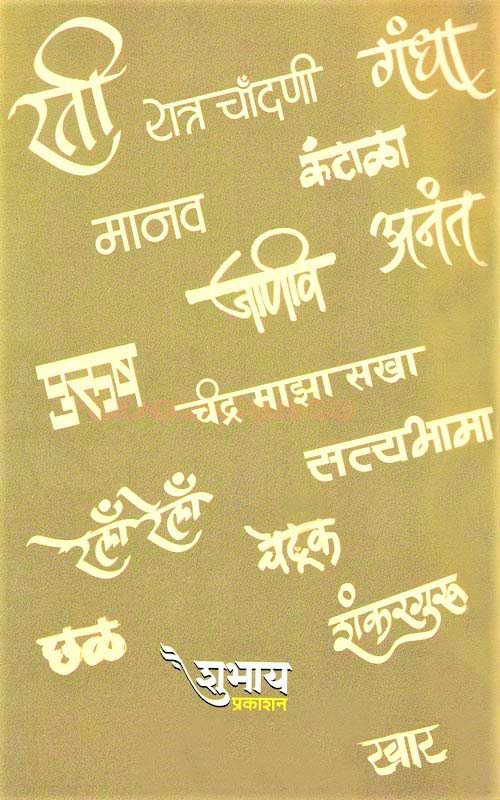 रती
रात्र चाँदणी
गंधा
कंटाळा
मानव
अनंत
जाणीव
पुरुष
चंद्र माझा सखा
सत्यभामा
रेलाँ रेलाँ
चेटूक
शंकरगुरू
छळ
शुभाय
प्रकाशन
खार